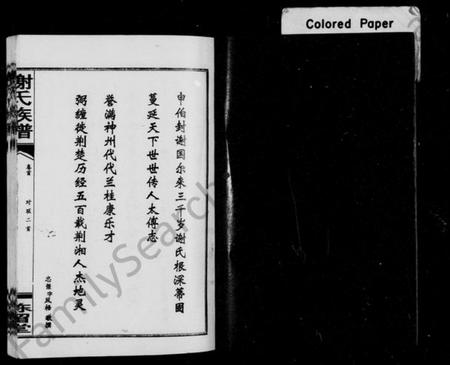 Colored Paper
申伯封谢国尔来三千岁谢氏根深蒂固
蔓延天下世世传人太傅志
誉满神州代代兰桂康乐才
弼缠徙荆楚历经五百载荆湘人杰地灵
敬撰
谢氏族谱
卷首
对联二首
陈留堂
FamilySearch